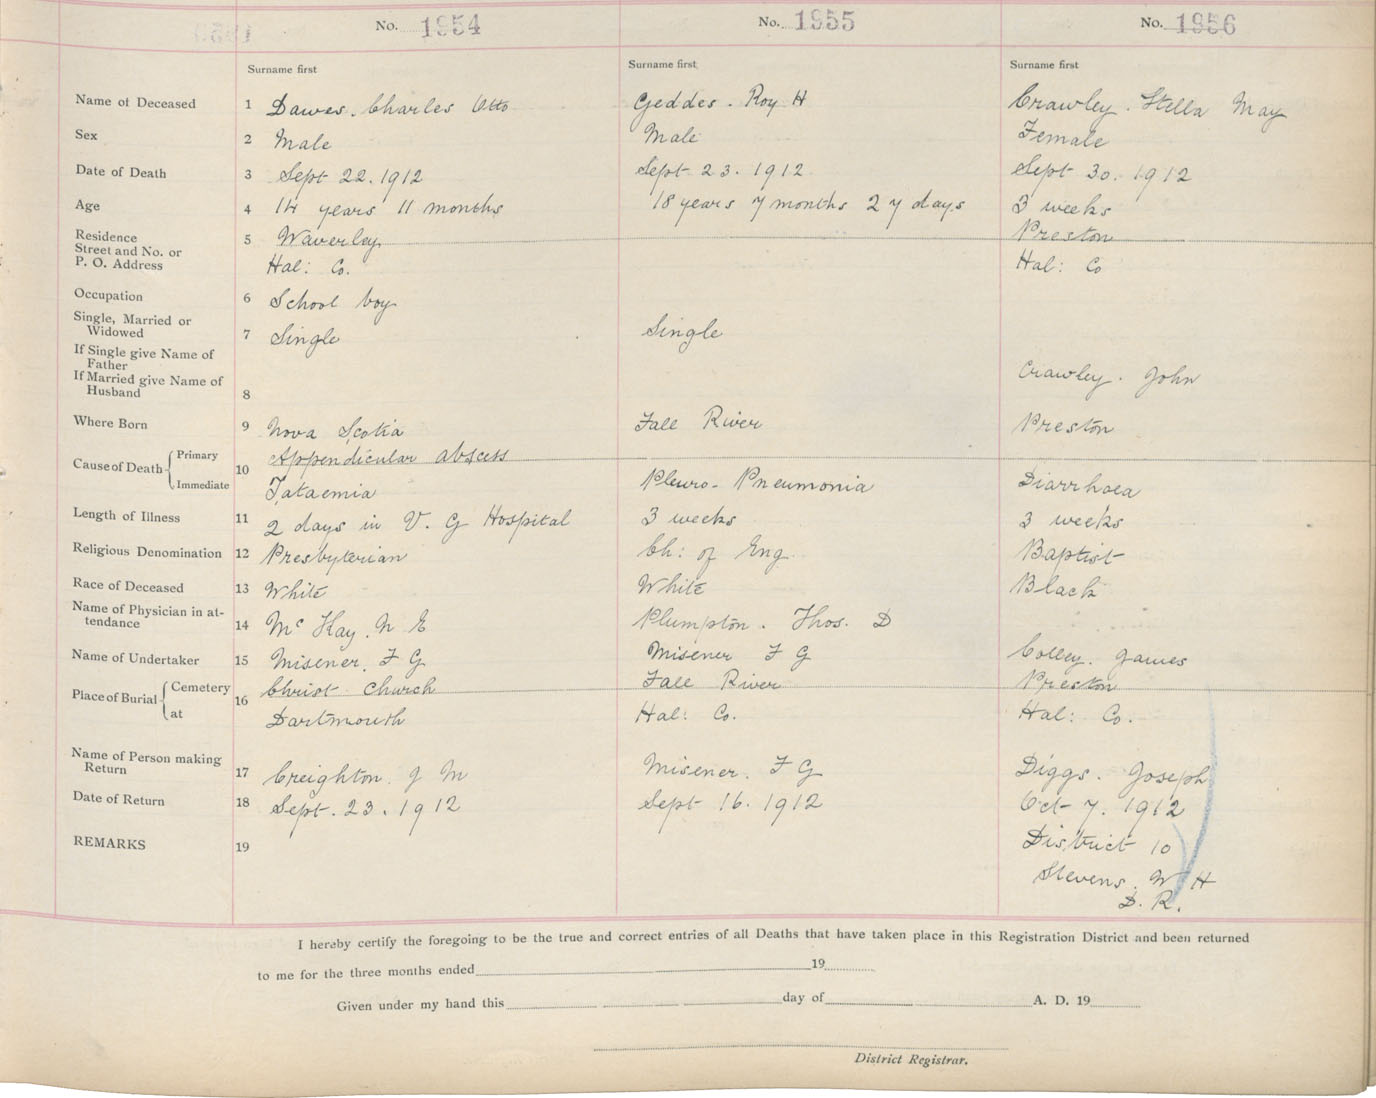 No. 1954 No. 1955 No. 1956
Surname first Surname first Surname first
Name of Deceased 1 Dawes. Charles Otto Geddes. Roy H Crawley. Stella May
Sex 2 Male Male Female
Date of Death 3 Sept 22. 1912 Sept 23. 1912 Sept 30. 1912
Age 4 14 years 11 months 18 years 7 months 27 days 3 weeks
Residence 5 Waverley Preston
Street and No. or
P. O. Address Hal: Co. Hal: Co
Occupation 6 School boy
Single, Married or
Widowed 7 Single Single
If Single give Name of
Father
If Married give Name of Crawley. John
Husband 8
Where Born 9 Nova Scotia Fall River Preston
Cause of Death Primary 10 Appendicular abscess
Immediate Pleuro-Pneumonia Diarrhoea
Length of Illness 11 2 days in V. G Hospital 3 weeks 3 weeks
Religious Denomination 12 Presbyterian Ch: of Eng. Baptist
Race of Deceased 13 White White Black
Name of Physician in at-
tendance 14 Mc Kay. N E Plumpton. Thos. D
Name of Undertaker 15 Misener. F G Misener F G Colley. James
Place of Burial Cemetery 16 Christ Church Fall River Preston
at Dartmouth Hal: Co. Hal: Co.
Name of Person making
Return 17 Creighton. J M Misener. F G Diggs. Joseph
Date of Return 18 Sept. 23. 1912 Sept 16. 1912 Oct 7. 1912
REMARKS 19 District 10
Stevens. W H
D. R.
I hereby certify the foregoing to be the true and correct entries of all Deaths that have taken place in this Registration District and been returned
to me for the three months ended 19
Given under my hand this day of A. D. 19
District Registrar.